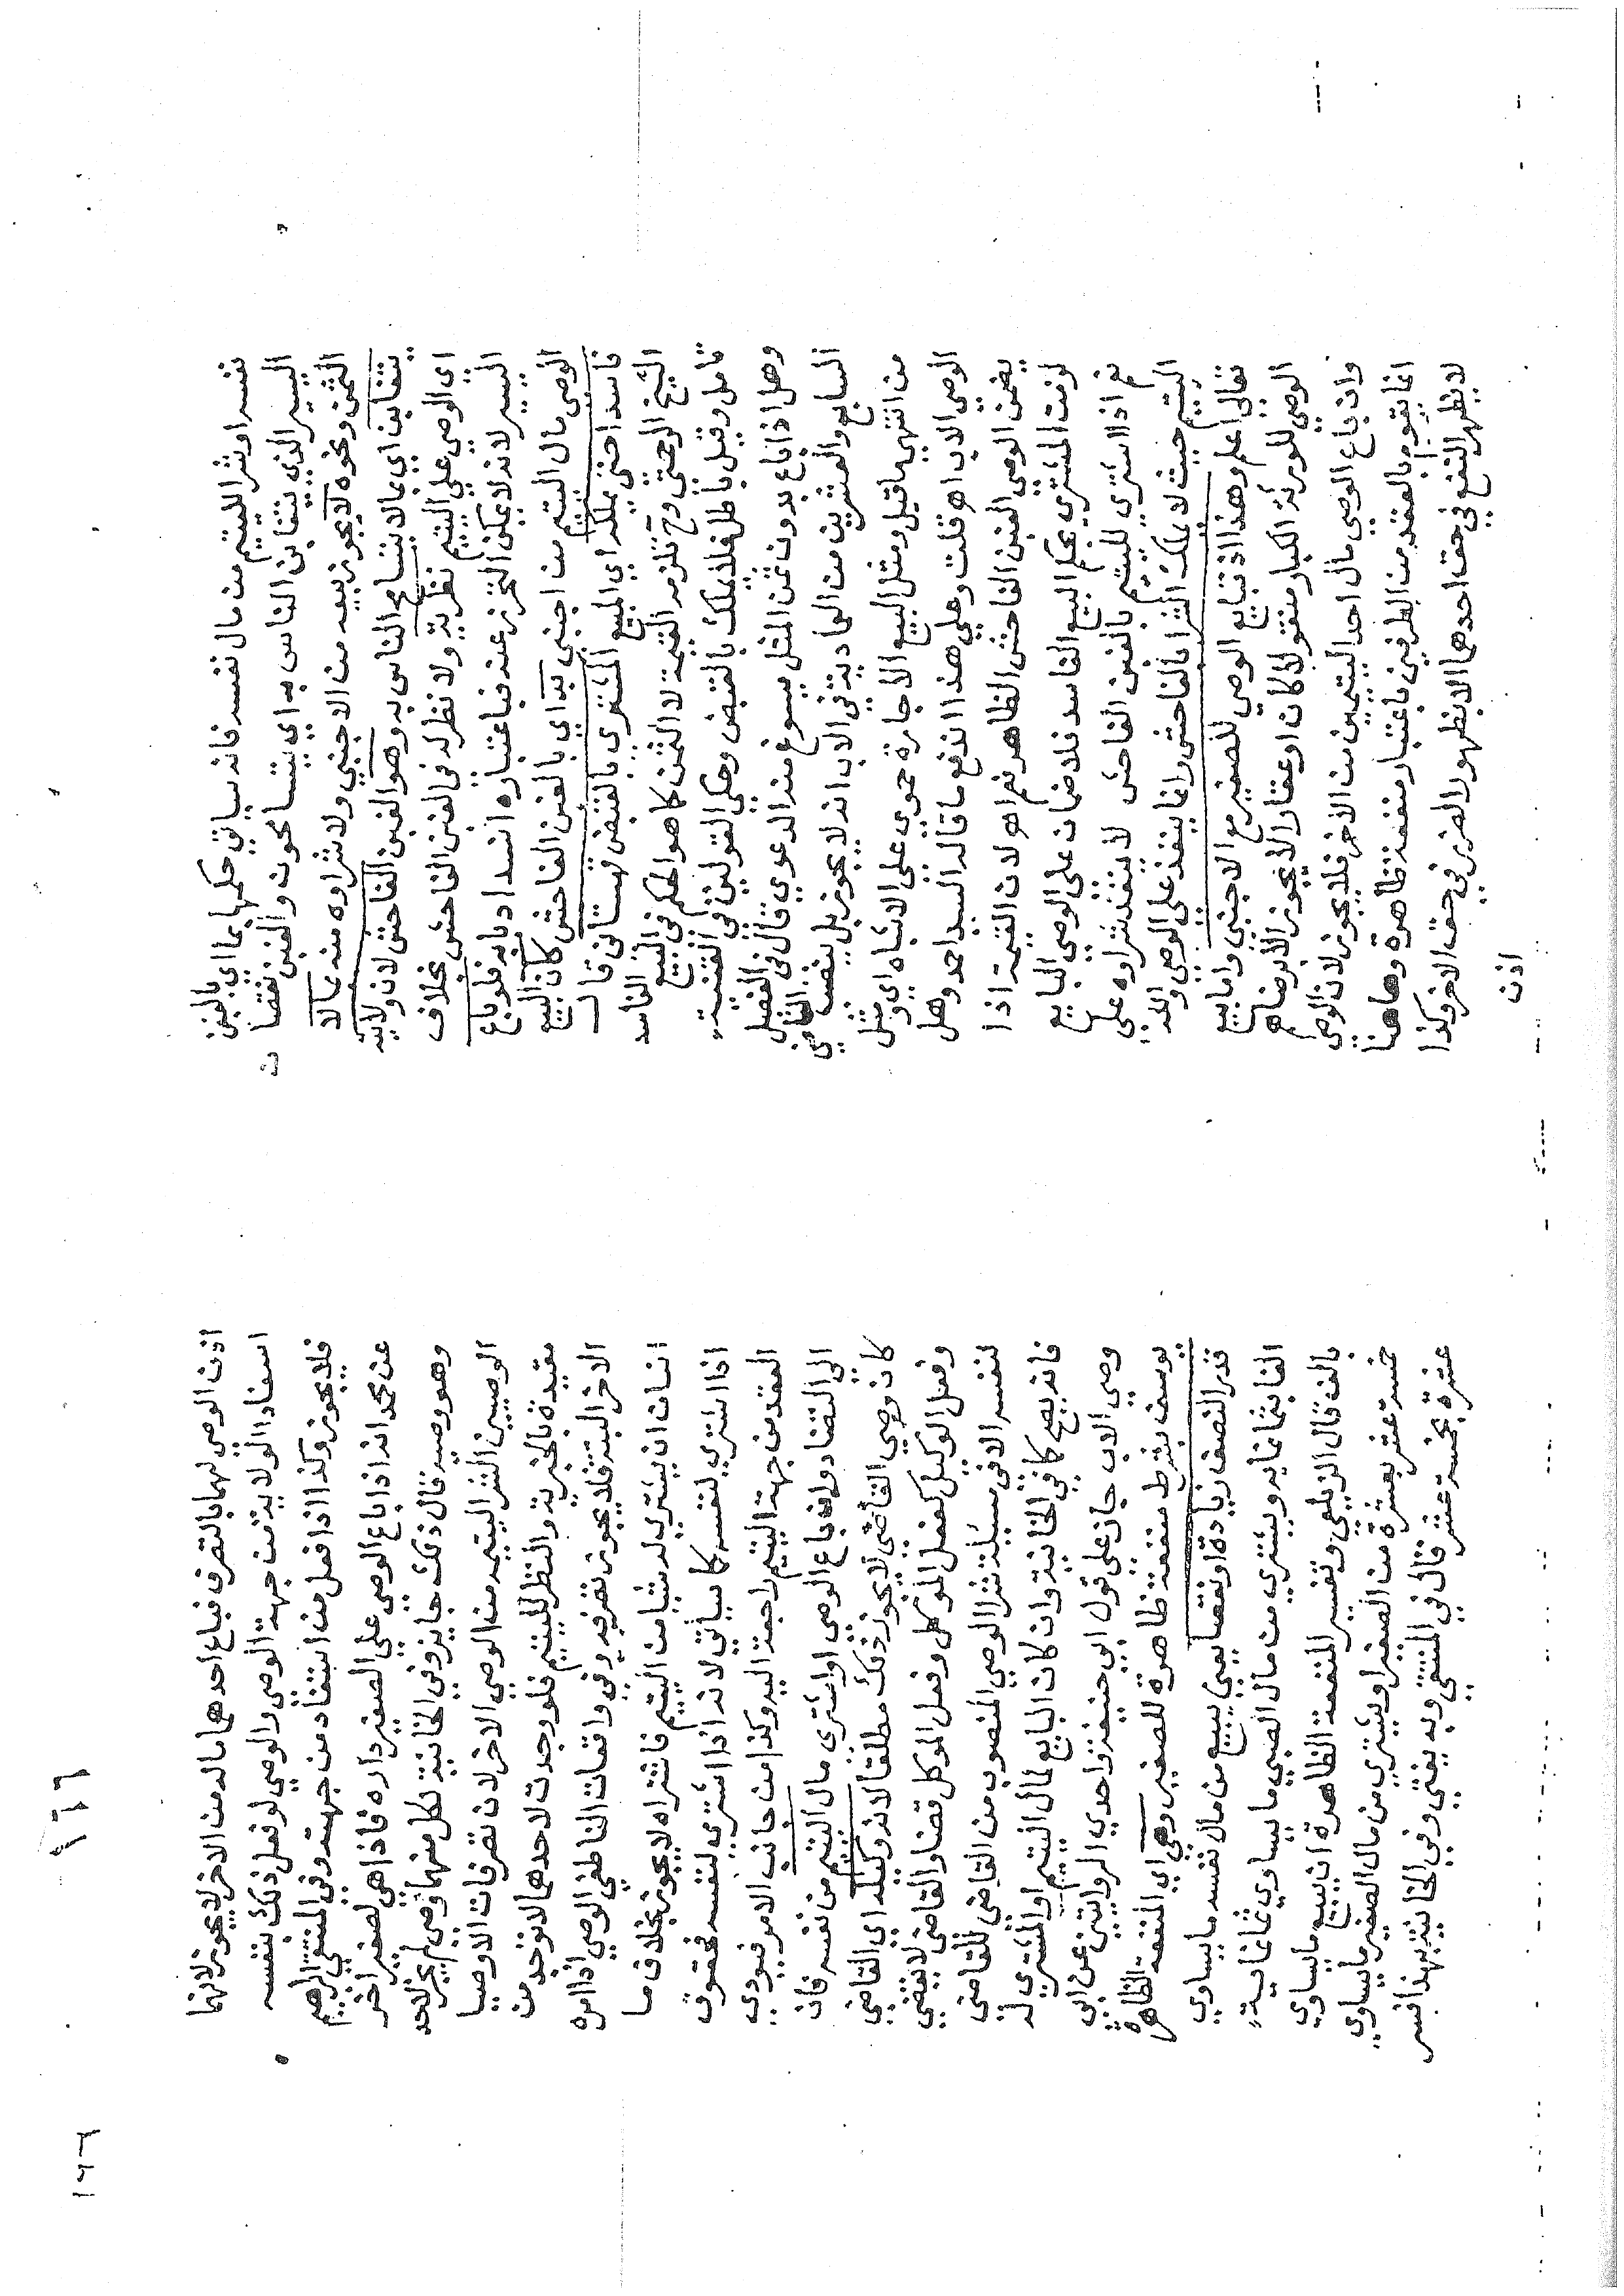 نفسه او شرا لليتيم من مال نفسه فانه سياتي حكمها بما اي بالغبن
اليسير الذي يتغابن الناس به اي يتسامحون والغبن نقصان
الثمن ونحوه لا يجوز بيعه من الاجنبي ولا شراوه منه بما لا
يتغابن اي بما لا يتسامح الناس به وهو الغبن الفاحش لان ولايته
اي الوصي علي اليتيم نظرية ولا نظر له في الغبن الفاحش بخلاف
اليسير لانه لا يمكن التحرز عنه فباعتباره انسداد بابه فلو باع
الوصي مال اليتيم من اجنبي به اي بالغبن الفاحش كان البيع
فاسدا حتي يملكه اي المبيع المشتري بالقبض قهستاني قال
الشيخ الرحمتي وح تلزمه القيمة لا الثمن كما هو الحكم في البيع الفاسد
تامل وقيل باطل فلا يملك بالقبض وحكي القولين في القنية
وهل اذا باع بدون ثمن المثل يسوغ منه الدعوي قال في الفصل
السابع والعشرين من العمادية في الاب انه لا يجوز بل ينصب القاضي
من انتهي ما قيل ومثل البيع الاجارة حموي علي الاشباه اي ومثل
الوصي الاب اه قلت وعلي هذا اندفع ما قاله السيد احمد وهل
يضمن الوصي الغبن الفاحش الظاهر نعم اه لان القيمة اذا
لزمت المشتري بحكم البيع الفاسد فلا ضمان علي الوصي البايع
نعم اذا اشتري لليتيم بالغبن الفاحش لا ينفذ شراوه علي
اليتيم حيث لا يملك الشرا بالفاحش وانما ينفذ علي الوصي والله
تعالي اعلم وهذا اذ تبايع الوصي للصغير مع الاجنبي واما بيع
الوصي للورثة الكبار منقولا كان او عقارا لا يجوز الا برضاهم
وان باع الوصي مال احد اليتيمين من الاخر فلا يجوز لان الوصي
انما يقوم بالعقد من الطرفين باعتبار منفعة ظاهرة وهاهنا
لا يظهر النفع في حق احدهما الا بظهور الضرر في حق الاخر وكذا
اذن
١٦٦
اذن الوصي لهما بالتصرف فباع احدهما ماله من الاخر لا يجوز لانهما
استفادا الولاية من جهة الوصي والوصي لو فعل ذلك بنفسه
فلا يجوز وكذا اذا فعل من استفاد من جهته وفي المنتقي ابراهيم
عن محمد انه اذا باع الوصي علي الصغير داره فاذا هي لصغير اخر
وهو وصيه قال ذلك جايز وفي الخانية لكل منهما وصي لم يجز لاحد
الوصيين الشرا ليتيمه من الوصي الاخر لان تصرفات الاوصيا
مقيدة بالخيرية والنظر لليتيم فلو وجدت لاحدهما لا توجد من
الاخر البتة فلا يجوز تصرفه وفي واقعات الناطفي الوصي اذا امره
انسان ان يشتري له شيا من اليتيم فاشتراه لا يجوز بخلاف ما
اذا اشتري لنفسه كما سياتي لانه اذا اشتري لنفسه فحقوق
العقد من جهة اليتيم راجعة اليه وكذا من جانب الامر فيودي
الي التضاد وان باع الوصي او اشتري مال اليتيم من نفسه فان
كان وصي القاضي لا يجوز ذلك مطلقا لانه وكيله اي القاضي
وفعل الوكيل كفعل الموكل وفعل الموكل قضا والقاضي لا يقضي
لنفسه الا في مسيلة شرا الوصي المنصوب من القاضي للقاضي
فانه يصح كما في الخانية وان كان البايع لمال اليتيم او المشتري له
وصي الاب جاز علي قول ابي حنيفة واحدي الروايتين عن ابي
يوسف بشرط منفعة ظاهرة للصغير وهي اي المنفعة الظاهرة
قدر النصف زيادة او نقصا يعني يبيع من مال نفسه ما يساوي
الفا بثمانماية ويشتري من مال الصبي ما يساوي ثمانماية
بالف قال الزيلعي وتفسير المنفعة الظاهرة ان يبيع ما يساوي
خمسة عشر بعشرة من الصغير او يشتري من مال الصغير ما يساوي
عشرة بخمسة عشر قال في المنتقي وبه يفتي وفي الخانية بهذا فسر
١٦٦